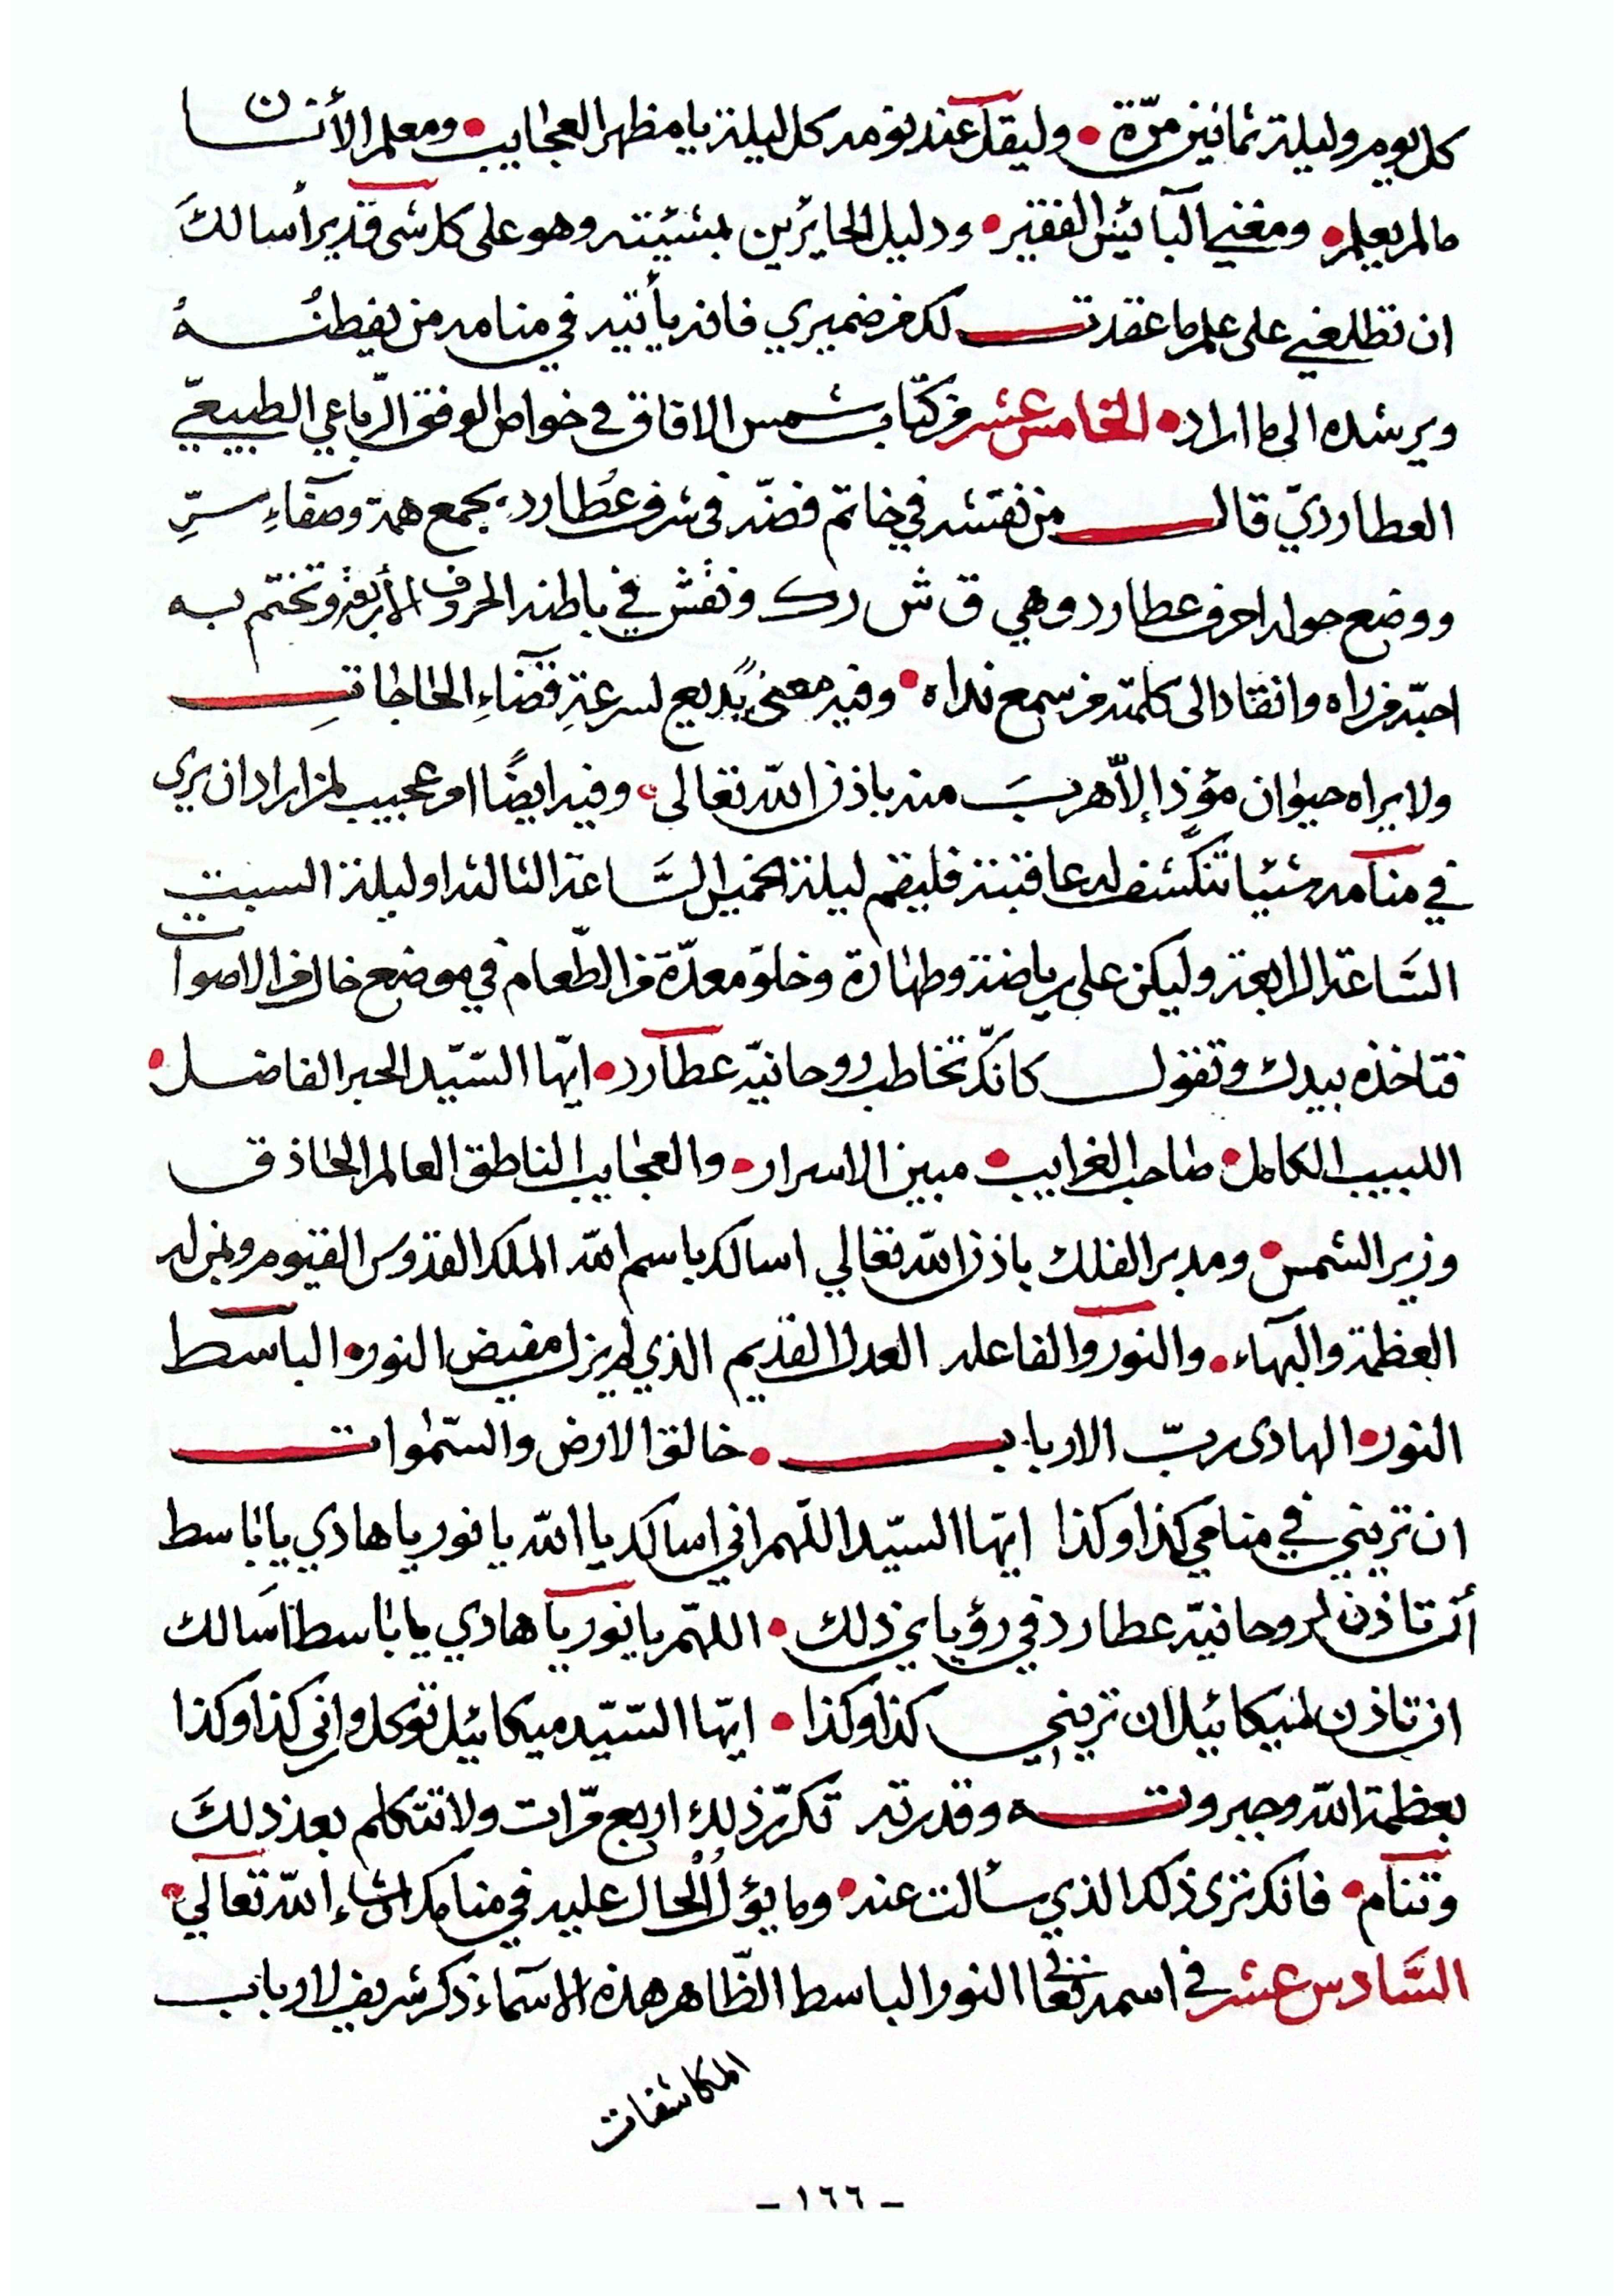 كل يوم وليلة ثمانين مرّة • وليقل عند نومه كل ليلة يا مظهر العجايب • ومعلم الأنسان
مالم يعلم • ومغني البآئس الفقير • ودليل الحايرين بمشيئته وهو على كل شى قدير أسالك
ان تطلعني على علم ما عقدت لك من ضميري فانه يأتيه في منامه من يفطنه
ويرشده الى ما اراد • الخامس عشر من كتاب شمس الافاق في خواص الوفق الرّباعي الطبيعيّ
العطارديّ قال من نقشه في خاتم فضّه فى شرف عطارد بجمع همة وصفآءِ سرِّ
ووضع حوله احرف عطارد وهي ق ش ر ك ونقش في باطنه الحروف الأربعة وتختم به
احبّه من راه وانقاد الى كلمته من سمع نداه • وفيه معنىً بديع لسرعةِ قضآءِ الحاجاتِ
ولا يراه حيوان مؤذ إلاّ هربَ منه باذن اللّه تعالى • وفيه ايضًا امر عجيب لمن اراد ان يرى
في منامه شئيا تنكشف له عاقبته فليقم ليلة الخميس السَّاعة الثالثه او ليلة السبت
السَّاعة الرابعة وليكن على رياضة وطهارة وخلوّ معدّة من الطّعام في موضع خال من الاصوات
فتاخذه بيدك وتقول كانّك تخاطب روحانيّه عطارد • ايّها السّيّد الحبر الفاضل •
اللبيب الكامل • صاحب الغرايب • مبين الاسرار • والعجايب الناطق العالم الحاذق
وزير الشمس • ومدبر الفلك باذن اللّه تعالي اسالك باسم اللّه الملك القدّوس القيّوم ومن له
العظمة والبهآء • والنور والفاعله العدل القديم الذي لم يزل مفيض النور • الباسط
النور • الهادى ربّ الارباب • خالق الارض والسّموات
ان تريني في منامي كذا وكذا ايّها السيّد اللّهم اني اسالك يا اللّه يا نور يا هادي يا باسط
أن تاذن لروحانيّه عطارد في رؤياي ذلك • اللهمّ يا نور يا هادي يا باسط اسَالك
ان تاذن لميكائيل ان تريني كذا وكذا • ايّها السّيّد ميكائيل توكل وارِني كذا وكذا
بعظمة اللّه وجبروته وقدرته تكرّر ذلك اربع مّرات ولا تتكلم بعد ذلكَ
وتنام • فانك ترى ذلك الذي سألت عنه • وما يؤل الحال عليه في منامك ان شاء اللّه تعالي •
السَّادس عشر في اسمه تعالى النور الباسط الظّاهر هذه الاسمآء ذكر شريف لارباب
المكاشفات
– ١٦٦ –